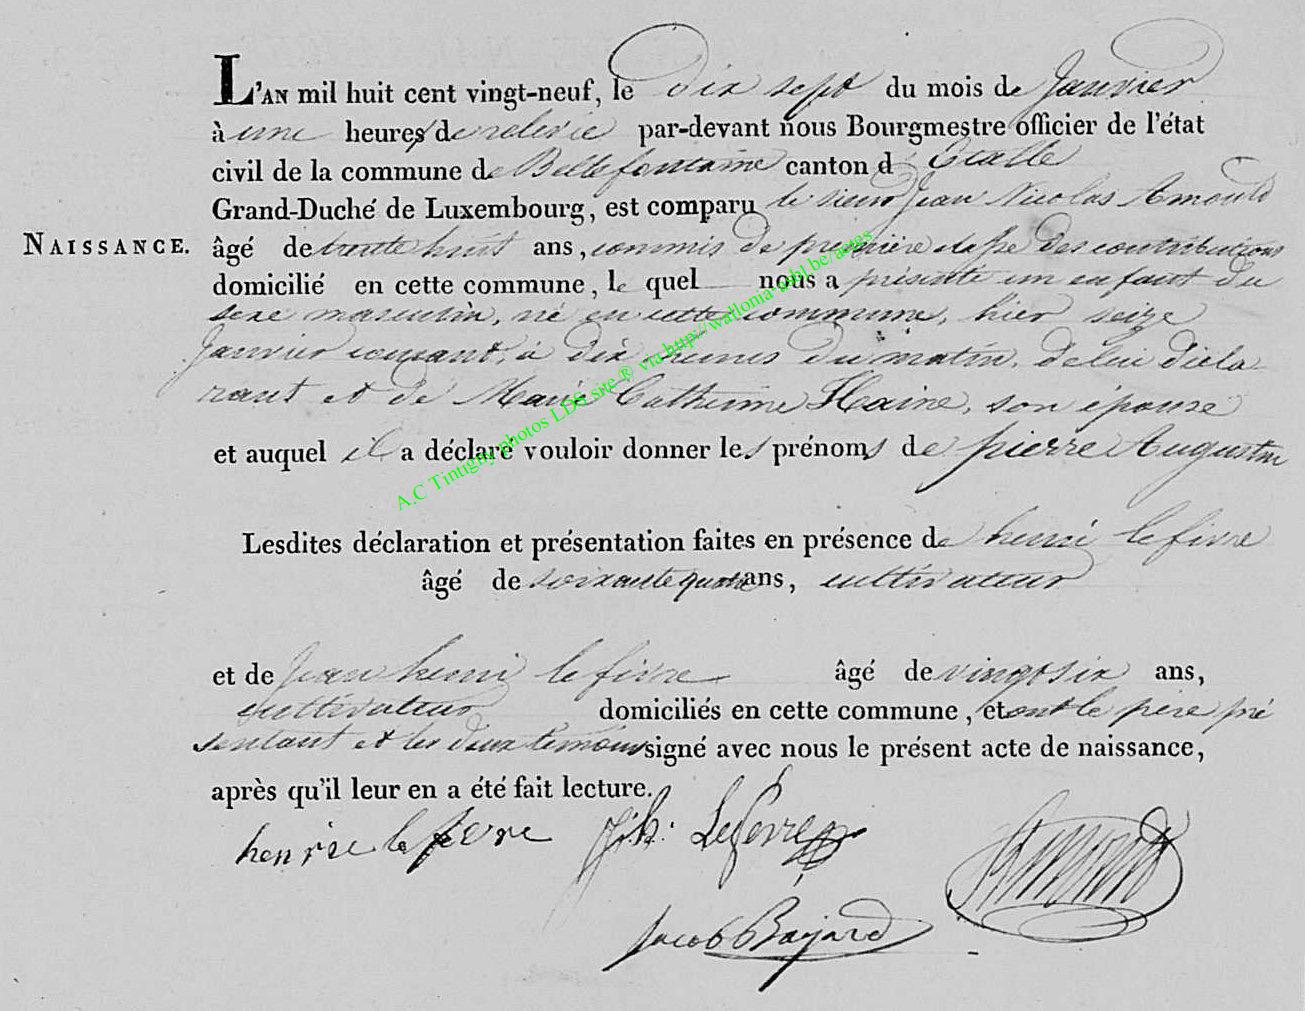 L'AN mil huit cent vingt-neuf, le dix sept du mois de Janvier
à une heures de relevée par-devant nous Bourgmestre officier de l'état
civil de la commune de Bellefontaine canton d'Etalle
Grand-Duché de Luxembourg, est comparu le sieur Jean Nicolas Arnould
NAISSANCE. âgé de trente huit ans, commis de première classe des contributions
domicilié en cette commune, lequel nous a présenté un enfant du
sexe masculin, né en cette commune, hier seize
Janvier courant, à dix heures du matin, de lui décla
rant et de Marie Catherine Haine, son épouse
et auquel il a déclaré vouloir donner les prénoms de pierre Augustin
Lesdites déclaration et présentation faites en présence de henri lefevre
âgé de soixante quatre ans, cultivateur
et de Jean henri lefevre âgé de vingt six ans,
cultivateur domiciliés en cette commune, et ont le père pré
sentant et les deux témoins signé avec nous le présent acte de naissance,
après qu'il leur en a été fait lecture.
henrie lefevre J. h. Lefevre Arnould
Jacob Bajard
A.C Tintigny photos LDS site ® via http://wallonia-asbl.be/actes